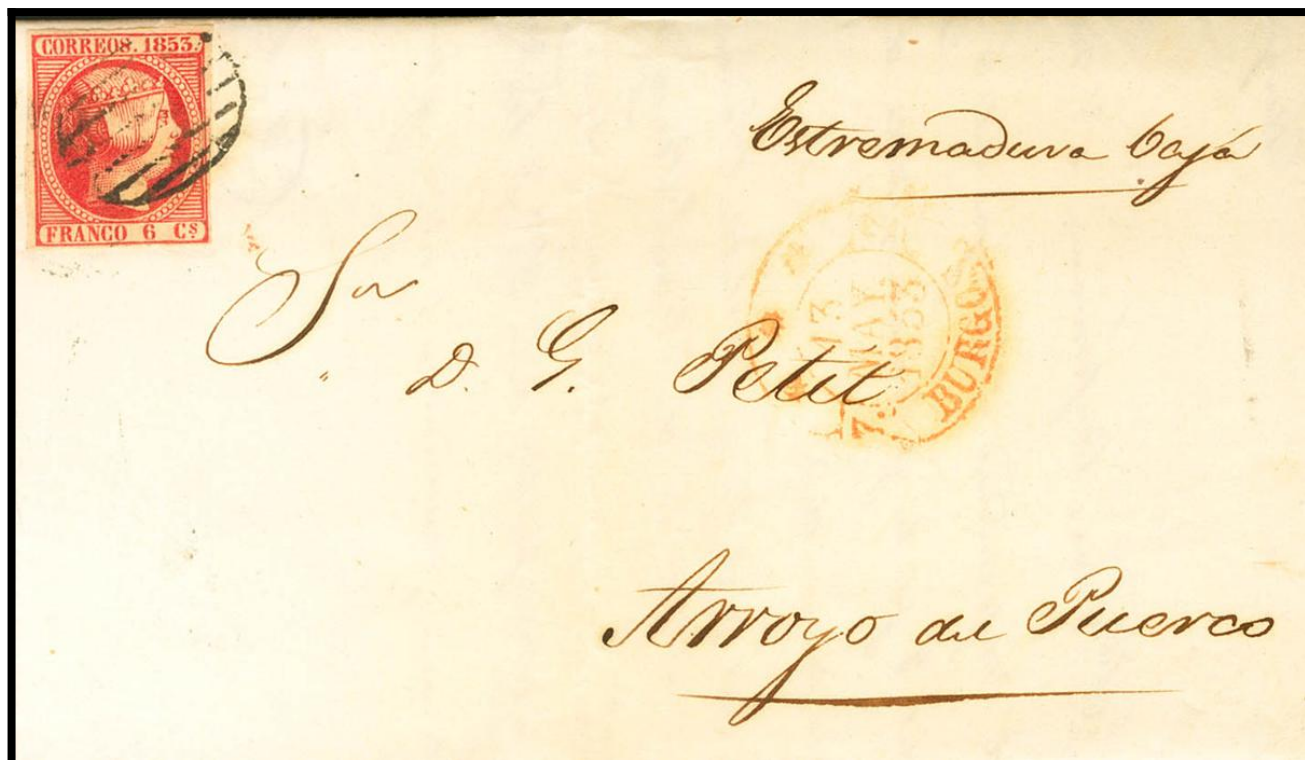 CORREOS. 1853.
FRANCO 6 Cs
Estremadura baja
Sor
D. G. Petit
13
MAY
1853
BURGOS
Arroyo del Puerco